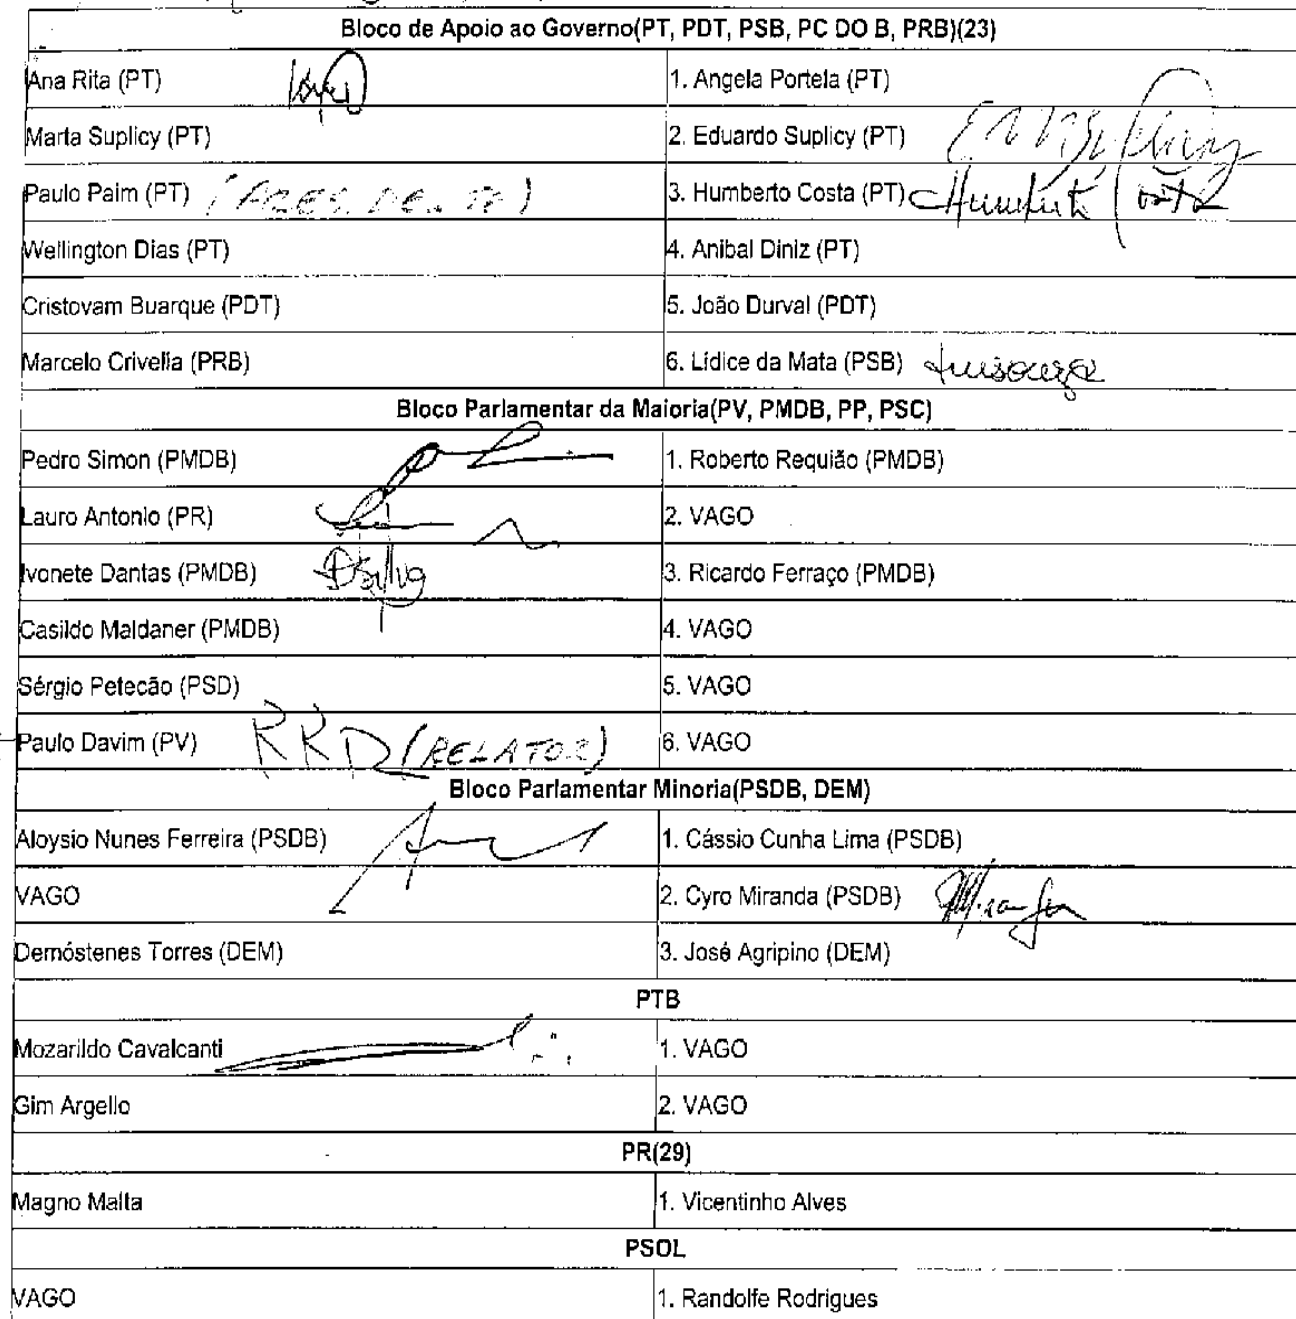 Bloco de Apoio ao Governo(PT, PDT, PSB, PC DO B, PRB)(23)
Ana Rita (PT) 1. Angela Portela (PT)
Marta Suplicy (PT) 2. Eduardo Suplicy (PT)
Paulo Paim (PT) 3. Humberto Costa (PT) Humberto Costa
Wellington Dias (PT) 4. Anibal Diniz (PT)
Cristovam Buarque (PDT) 5. João Durval (PDT)
Marcelo Crivella (PRB) 6. Lídice da Mata (PSB)
Bloco Parlamentar da Maioria(PV, PMDB, PP, PSC)
Pedro Simon (PMDB) 1. Roberto Requião (PMDB)
Lauro Antonio (PR) 2. VAGO
Ivonete Dantas (PMDB) 3. Ricardo Ferraço (PMDB)
Casildo Maldaner (PMDB) 4. VAGO
Sérgio Petecão (PSD) 5. VAGO
Paulo Davim (PV) (RELATOR) 6. VAGO
Bloco Parlamentar Minoria(PSDB, DEM)
Aloysio Nunes Ferreira (PSDB) 1. Cássio Cunha Lima (PSDB)
VAGO 2. Cyro Miranda (PSDB)
Demóstenes Torres (DEM) 3. José Agripino (DEM)
PTB
Mozarildo Cavalcanti 1. VAGO
Gim Argello 2. VAGO
PR(29)
Magno Malta 1. Vicentinho Alves
PSOL
VAGO 1. Randolfe Rodrigues